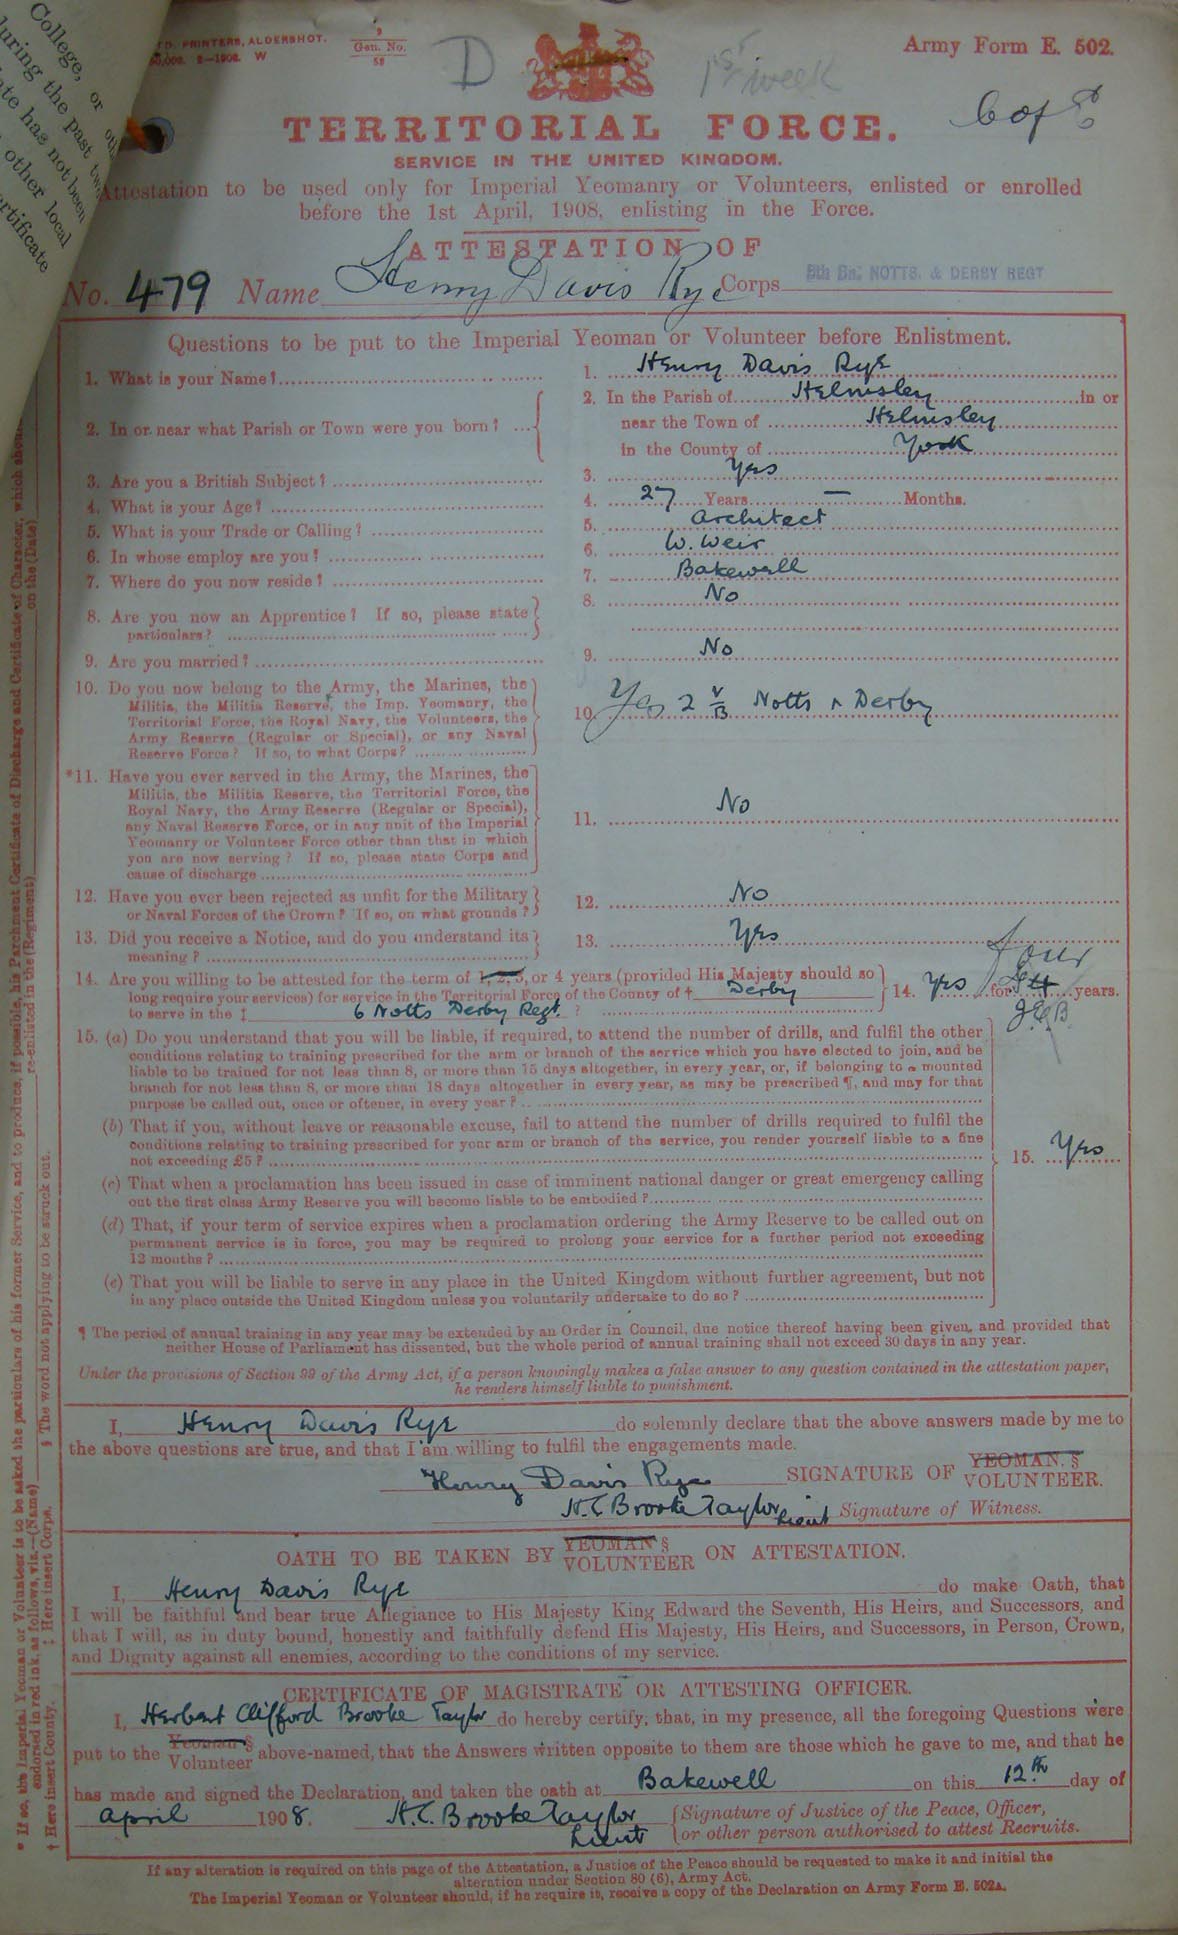 College, or
during the past two
has not been
other local
certificate
PRINTERS, ALDERSHOT.
9
Gen. No.
58
D
1st week
Army Form E. 502.
TERRITORIAL FORCE.
SERVICE IN THE UNITED KINGDOM.
Attestation to be used only for Imperial Yeomanry or Volunteers, enlisted or enrolled
before the 1st April, 1908, enlisting in the Force.
ATTESTATION OF
No. 479 Name Henry Davis Rye Corps 6th Bn: NOTTS. & DERBY REGT
Questions to be put to the Imperial Yeoman or Volunteer before Enlistment.
1. What is your Name? 1. Henry Davis Rye
2. In or near what Parish or Town were you born? 2. In the Parish of Helmsley in or
near the Town of Helmsley
in the County of York
3. Are you a British Subject? 3. Yes
4. What is your Age? 4. 27 Years — Months.
5. What is your Trade or Calling? 5. Architect
6. In whose employ are you? 6. W. Weir
7. Where do you now reside? 7. Bakewell
8. Are you now an Apprentice? If so, please state 8. No
particulars?
9. Are you married? 9. No
10. Do you now belong to the Army, the Marines, the
Militia, the Militia Reserve, the Imp. Yeomanry, the
Territorial Force, the Royal Navy, the Volunteers, the
Army Reserve (Regular or Special), or any Naval
Reserve Force? If so, to what Corps?
10. Yes 2 V B Notts & Derby
*11. Have you ever served in the Army, the Marines, the
Militia, the Militia Reserve, the Territorial Force, the
Royal Navy, the Army Reserve (Regular or Special),
any Naval Reserve Force, or in any unit of the Imperial
Yeomanry or Volunteer Force other than that in which
you are now serving? If so, please state Corps and
cause of discharge
11. No
12. Have you ever been rejected as unfit for the Military
or Naval Forces of the Crown? If so, on what grounds?
12. No
13. Did you receive a Notice, and do you understand its
meaning?
13. Yes
14. Are you willing to be attested for the term of 1, 2, 3, or 4 years (provided His Majesty should so
long require your services) for service in the Territorial Force of the County of † Derby
to serve in the ‡ 6 Notts Derby Regt. ?
four
14. Yes for years.
15. (a) Do you understand that you will be liable, if required, to attend the number of drills, and fulfil the other
conditions relating to training prescribed for the arm or branch of the service which you have elected to join, and be
liable to be trained for not less than 8, or more than 15 days altogether, in every year, or, if belonging to a mounted
branch for not less than 8, or more than 18 days altogether in every year, as may be prescribed ¶, and may for that
purpose be called out, once or oftener, in every year?
(b) That if you, without leave or reasonable excuse, fail to attend the number of drills required to fulfil the
conditions relating to training prescribed for your arm or branch of the service, you render yourself liable to a fine
not exceeding £5?
15. Yes
(c) That when a proclamation has been issued in case of imminent national danger or great emergency calling
out the first class Army Reserve you will become liable to be embodied?
(d) That, if your term of service expires when a proclamation ordering the Army Reserve to be called out on
permanent service is in force, you may be required to prolong your service for a further period not exceeding
12 months?
(e) That you will be liable to serve in any place in the United Kingdom without further agreement, but not
in any place outside the United Kingdom unless you voluntarily undertake to do so?
¶ The period of annual training in any year may be extended by an Order in Council, due notice thereof having been given, and provided that
neither House of Parliament has dissented, but the whole period of annual training shall not exceed 30 days in any year.
Under the provisions of Section 99 of the Army Act, if a person knowingly makes a false answer to any question contained in the attestation paper,
he renders himself liable to punishment.
I, Henry Davis Rye do solemnly declare that the above answers made by me to
the above questions are true, and that I am willing to fulfil the engagements made.
Henry Davis Rye SIGNATURE OF YEOMAN. §
VOLUNTEER.
H.C. Brooke Taylor Lieut Signature of Witness.
OATH TO BE TAKEN BY YEOMAN § VOLUNTEER ON ATTESTATION.
I, Henry Davis Rye do make Oath, that
I will be faithful and bear true Allegiance to His Majesty King Edward the Seventh, His Heirs, and Successors, and
that I will, as in duty bound, honestly and faithfully defend His Majesty, His Heirs, and Successors, in Person, Crown,
and Dignity against all enemies, according to the conditions of my service.
CERTIFICATE OF MAGISTRATE OR ATTESTING OFFICER.
I, Herbert Clifford Brooke Taylor do hereby certify, that, in my presence, all the foregoing Questions were
put to the Yeoman § Volunteer above-named, that the Answers written opposite to them are those which he gave to me, and that he
has made and signed the Declaration, and taken the oath at Bakewell on this 12th day of
April 1908. H.C. Brooke Taylor Lieut Signature of Justice of the Peace, Officer,
or other person authorised to attest Recruits.
If any alteration is required on this page of the Attestation, a Justice of the Peace should be requested to make it and initial the
alteration under Section 80 (6), Army Act.
The Imperial Yeoman or Volunteer should, if he require it, receive a copy of the Declaration on Army Form E. 502A.
* If so, the Imperial Yeoman or Volunteer is to be asked the particulars of his former Service, and to produce, if possible, his Parchment Certificate of Discharge and Certificate of Character, which should
endorsed in red ink, as follows, viz.—(Name) re-enlisted in the (Regiment) on the (Date)
† Here insert County. ‡ Here insert Corps. § The word not applying to be struck out.